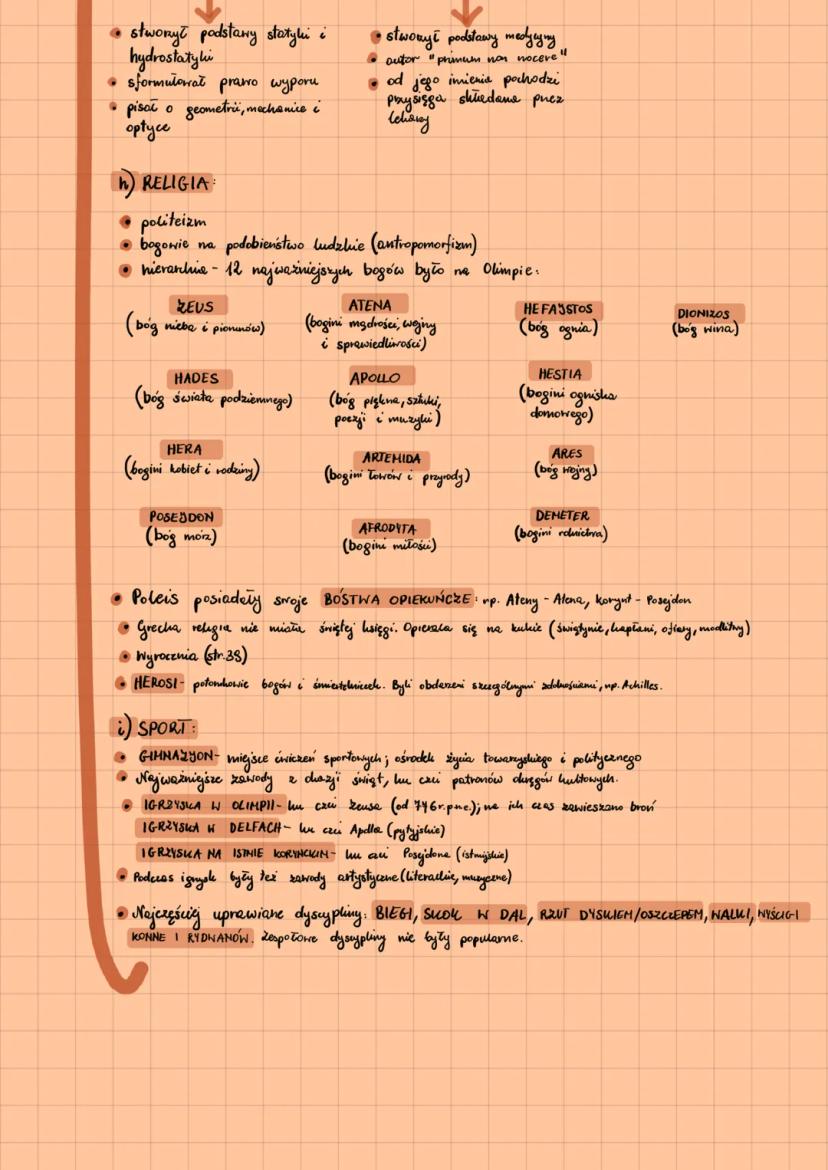 stworzył podstawy statyki i
hydrostatyki
sformułował prawo wyporu
pisał o geometrii, mechanice i
optyce
stworzył podstawy medycyny
autor "primum non nocere"
od jego imienia pochodzi
przysięga składana przez
lekarzy
h) RELIGIA:
politeizm
bogowie na podobieństwo ludzkie (antropomorfizm)
hierarchia - 12 najważniejszych bogów było na Olimpie:
ZEUS
(bóg nieba i piorunów)
ATENA
(bogini mądrości, wojny
i sprawiedliwości)
HEFAJSTOS
(bóg ognia)
DIONIZOS
(bóg wina)
HADES
(bóg świata podziemnego)
APOLLO
(bóg piękna, sztuki,
poezji i muzyki)
HESTIA
(bogini ogniska
domowego)
HERA
(bogini kobiet i rodziny)
ARTEMIDA
(bogini łowów i przyrody)
ARES
(bóg wojny)
POSEJDON
(bóg mórz)
AFRODYTA
(bogini miłości)
DEMETER
(bogini rolnictwa)
Poleis posiadały swoje BÓSTWA OPIEKUŃCZE: np. Ateny - Atena, Korynt - Posejdon
Grecka religia nie miała świętej księgi. Opierała się na kulcie (świątynie, kapłani, ofiary, modlitwy)
Wyrocznia (str.38)
HEROSI - potomkowie bogów i śmiertelniczek. Byli obdarzeni szczególnymi zdolnościami, np. Achilles.
i) SPORT:
GIMNAZJON - miejsce ćwiczeń sportowych; ośrodek życia towarzyskiego i politycznego
Najważniejsze zawody z okazji świąt, ku czci patronów okręgów kultowych.
IGRZYSKA W OLIMPII - ku czci Zeusa (od 776r.p.n.e.); na ich czas zawieszano broń
IGRZYSKA W DELFACH - ku czci Apolla (pytyjskie)
IGRZYSKA NA ISTMIE KORYNCKIM - ku czci Posejdona (istmijskie)
Podczas igrzysk były też zawody artystyczne (literackie, muzyczne)
Najczęściej uprawiane dyscypliny: BIEGI, SKOK W DAL, RZUT DYSKIEM/OSZCZEPEM, WALKI, WYŚCIGI
KONNE I RYDWANÓW. Zespołowe dyscypliny nie były popularne.